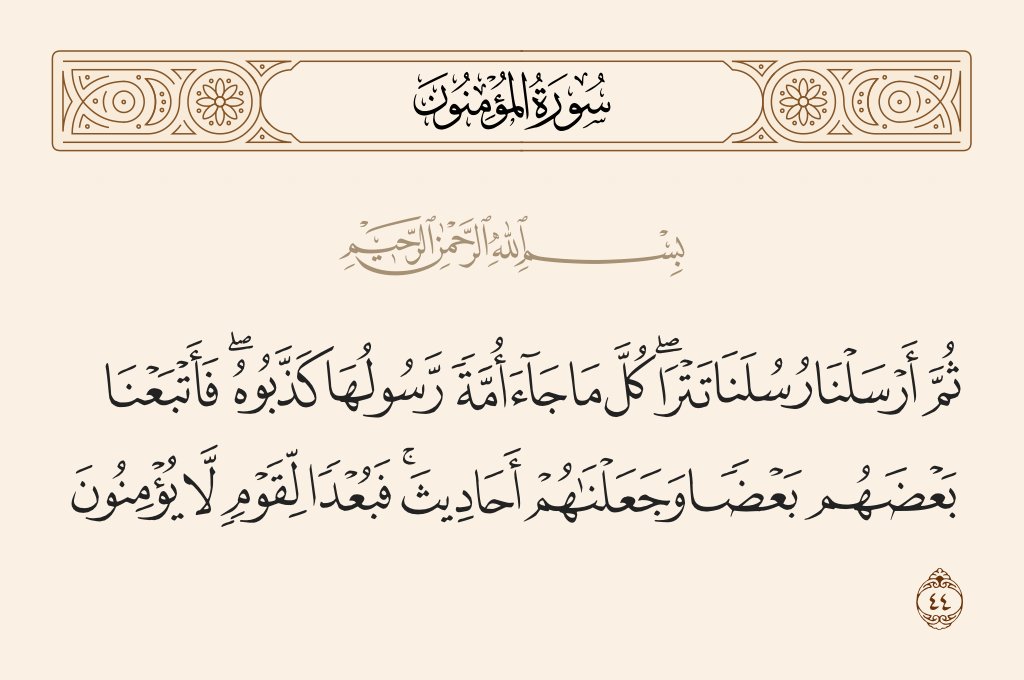 سُورَةُ الْمُؤْمِنُونَ
بِسْمِ ٱللَّهِ ٱلرَّحْمَٰنِ ٱلرَّحِيمِ
ثُمَّ أَرْسَلْنَا رُسُلَنَا تَتْرَاۖ كُلَّ مَا جَآءَ أُمَّةٗ رَّسُولُهَا كَذَّبُوهُۖ فَأَتْبَعْنَا
بَعْضَهُم بَعْضٗا وَجَعَلْنَٰهُمْ أَحَادِيثَۚ فَبُعْدٗا لِّقَوْمٖ لَّا يُؤْمِنُونَ
٤٤